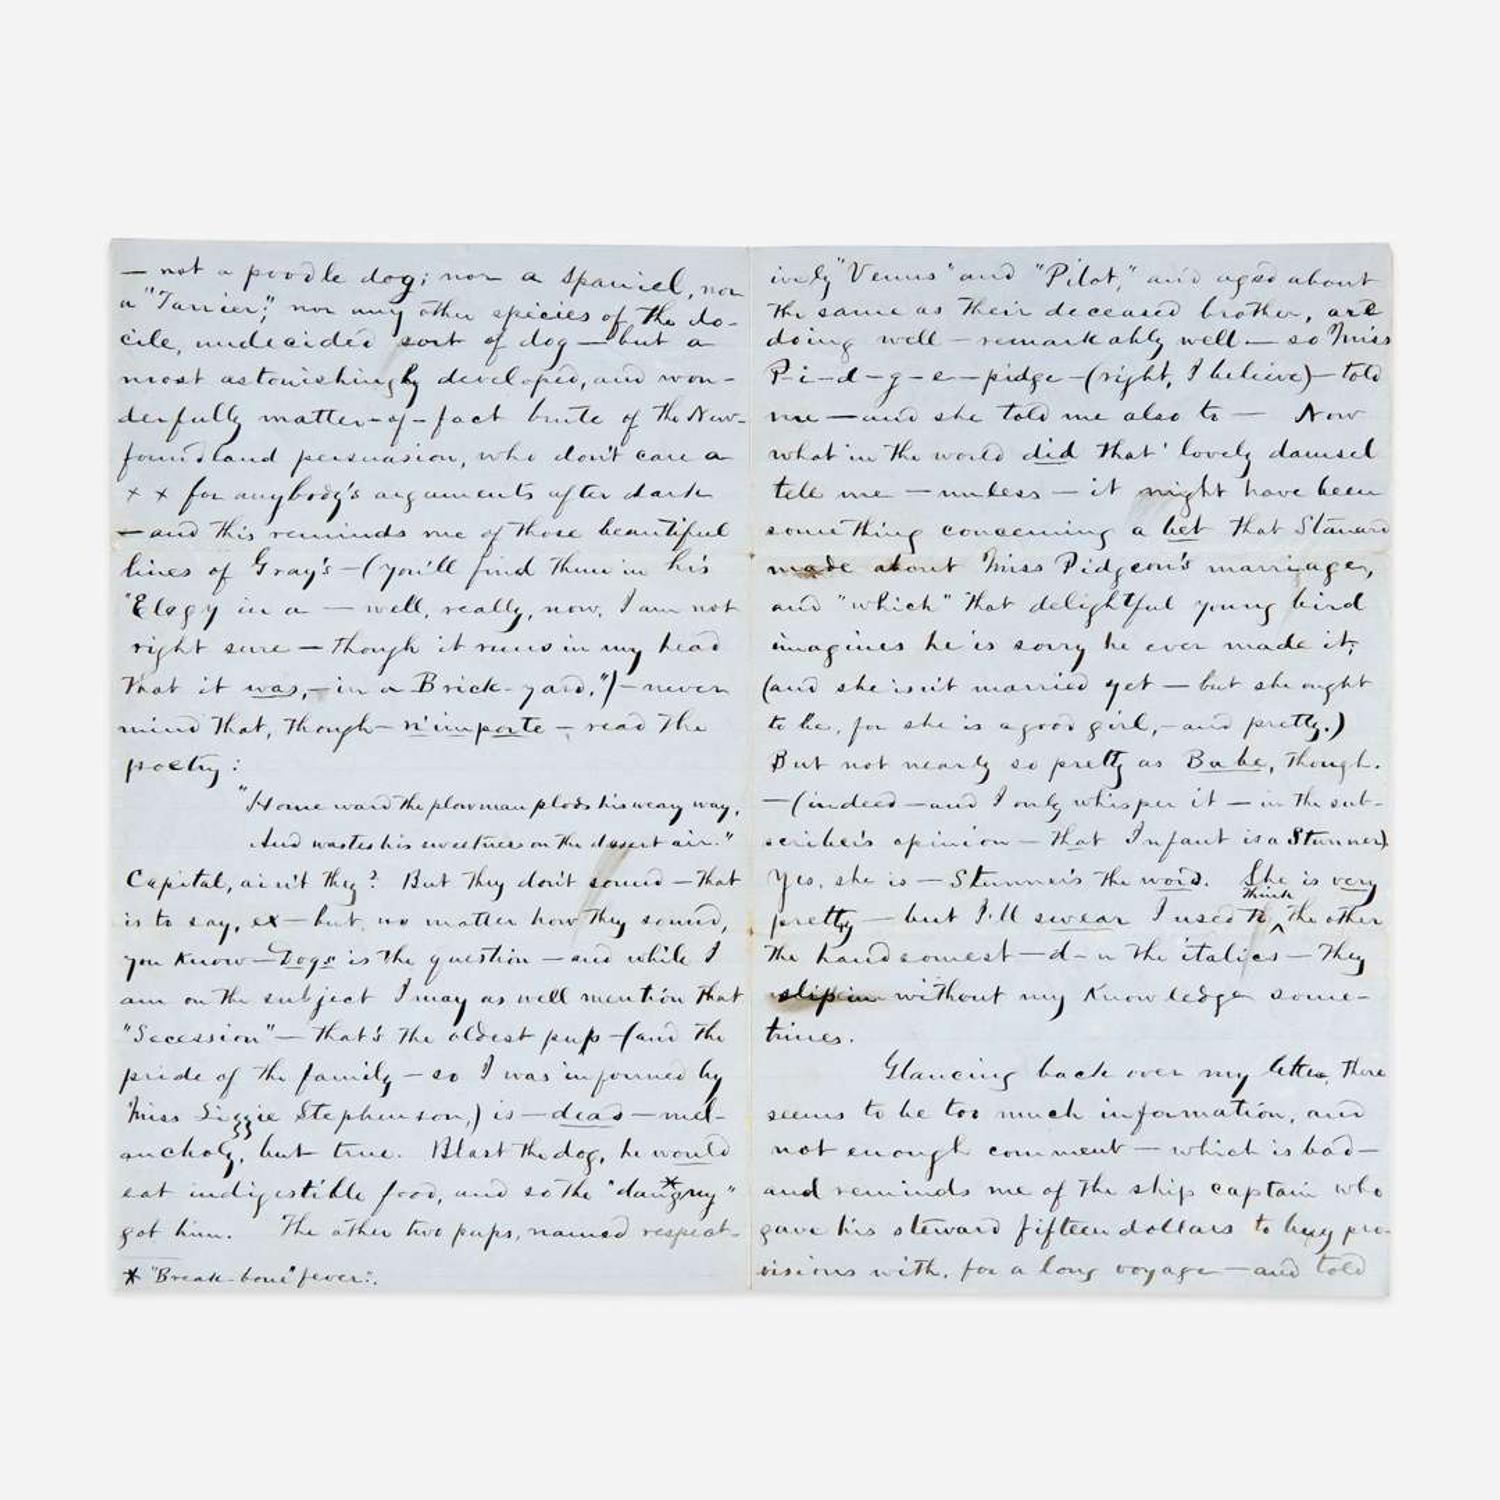 — not a poodle dog; nor a spaniel, nor
a "Tarrier;" nor any other species of the do-
cile, undecided sort of dog — but a
most astonishingly developed, and won-
derfully matter-of-fact brute of the New-
foundland persuasion, who don't care a
x x for anybody's arguments after dark
— and this reminds me of those beautiful
lines of Gray's — (you'll find them in his
"Elegy in a — well, really, now, I am not
right sure — though it runs in my head
that it was, — in a Brick-yard,") — never
mind that, though — n'importe — read the
poetry:
"Homeward the plowman plods his weary way,
And wastes his sweetness on the desert air."
Capital, ain't they? But they don't sound — that
is to say, ex — but no matter how they sound,
you know — Dogs is the question — and while I
am on the subject I may as well mention that
"Secession" — that's the oldest pup — (and the
pride of the family — so I was informed by
Miss Lizzie Stephenson,) is — dead — mel-
ancholy, but true. Blast the dog, he would
eat indigestible food, and so the "danguy*"
got him. The other two pups, named respect-
* "Break-bone" fever".
ively "Venus" and "Pilot," and aged about
the same as their deceased brother, are
doing well — remarkably well — so Miss
P-i-d-g-e — pidge — (right, I believe) — told
me — and she told me also to — Now
what in the world did that lovely damsel
tell me — unless — it might have been
something concerning a bet that Stanard
made about Miss Pidgeon's marriage,
and "which" that delightful young bird
imagines he is sorry he ever made it;
(and she isn't married yet — but she ought
to be, for she is a good girl, — and pretty.)
But not nearly so pretty as Babe, though.
— (indeed — and I only whisper it — in the sub-
scriber's opinion — that Infant is a Stunner).
Yes, she is — Stunner's the word. She is very
pretty — but I'll swear I used to think the other
the handsomest — d—n the italics — they
slip in without my knowledge some-
times.
Glancing back over my letter, there
seems to be too much information, and
not enough comment — which is bad —
and reminds me of the ship captain who
gave his steward fifteen dollars to buy pro-
visions with, for a long voyage — and told